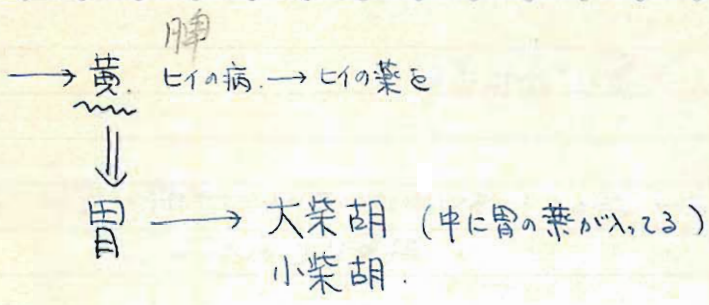 脾
→ 黄. ヒイの病. → ヒイの薬を
⇓
胃 → 大柴胡 (中に胃の薬が入ってる)
小柴胡.